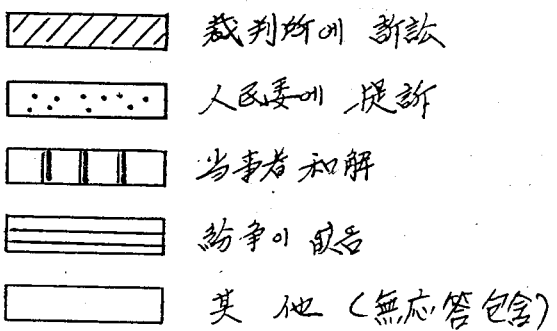 裁判所에 訴訟
人民委에 提訴
当事者 和解
紛争이
其 他 (無応答包含)